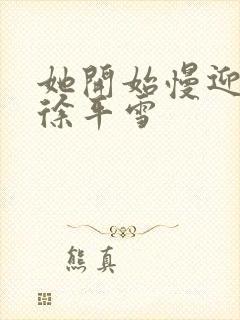 她開始慢迎
徐平雪
熊真